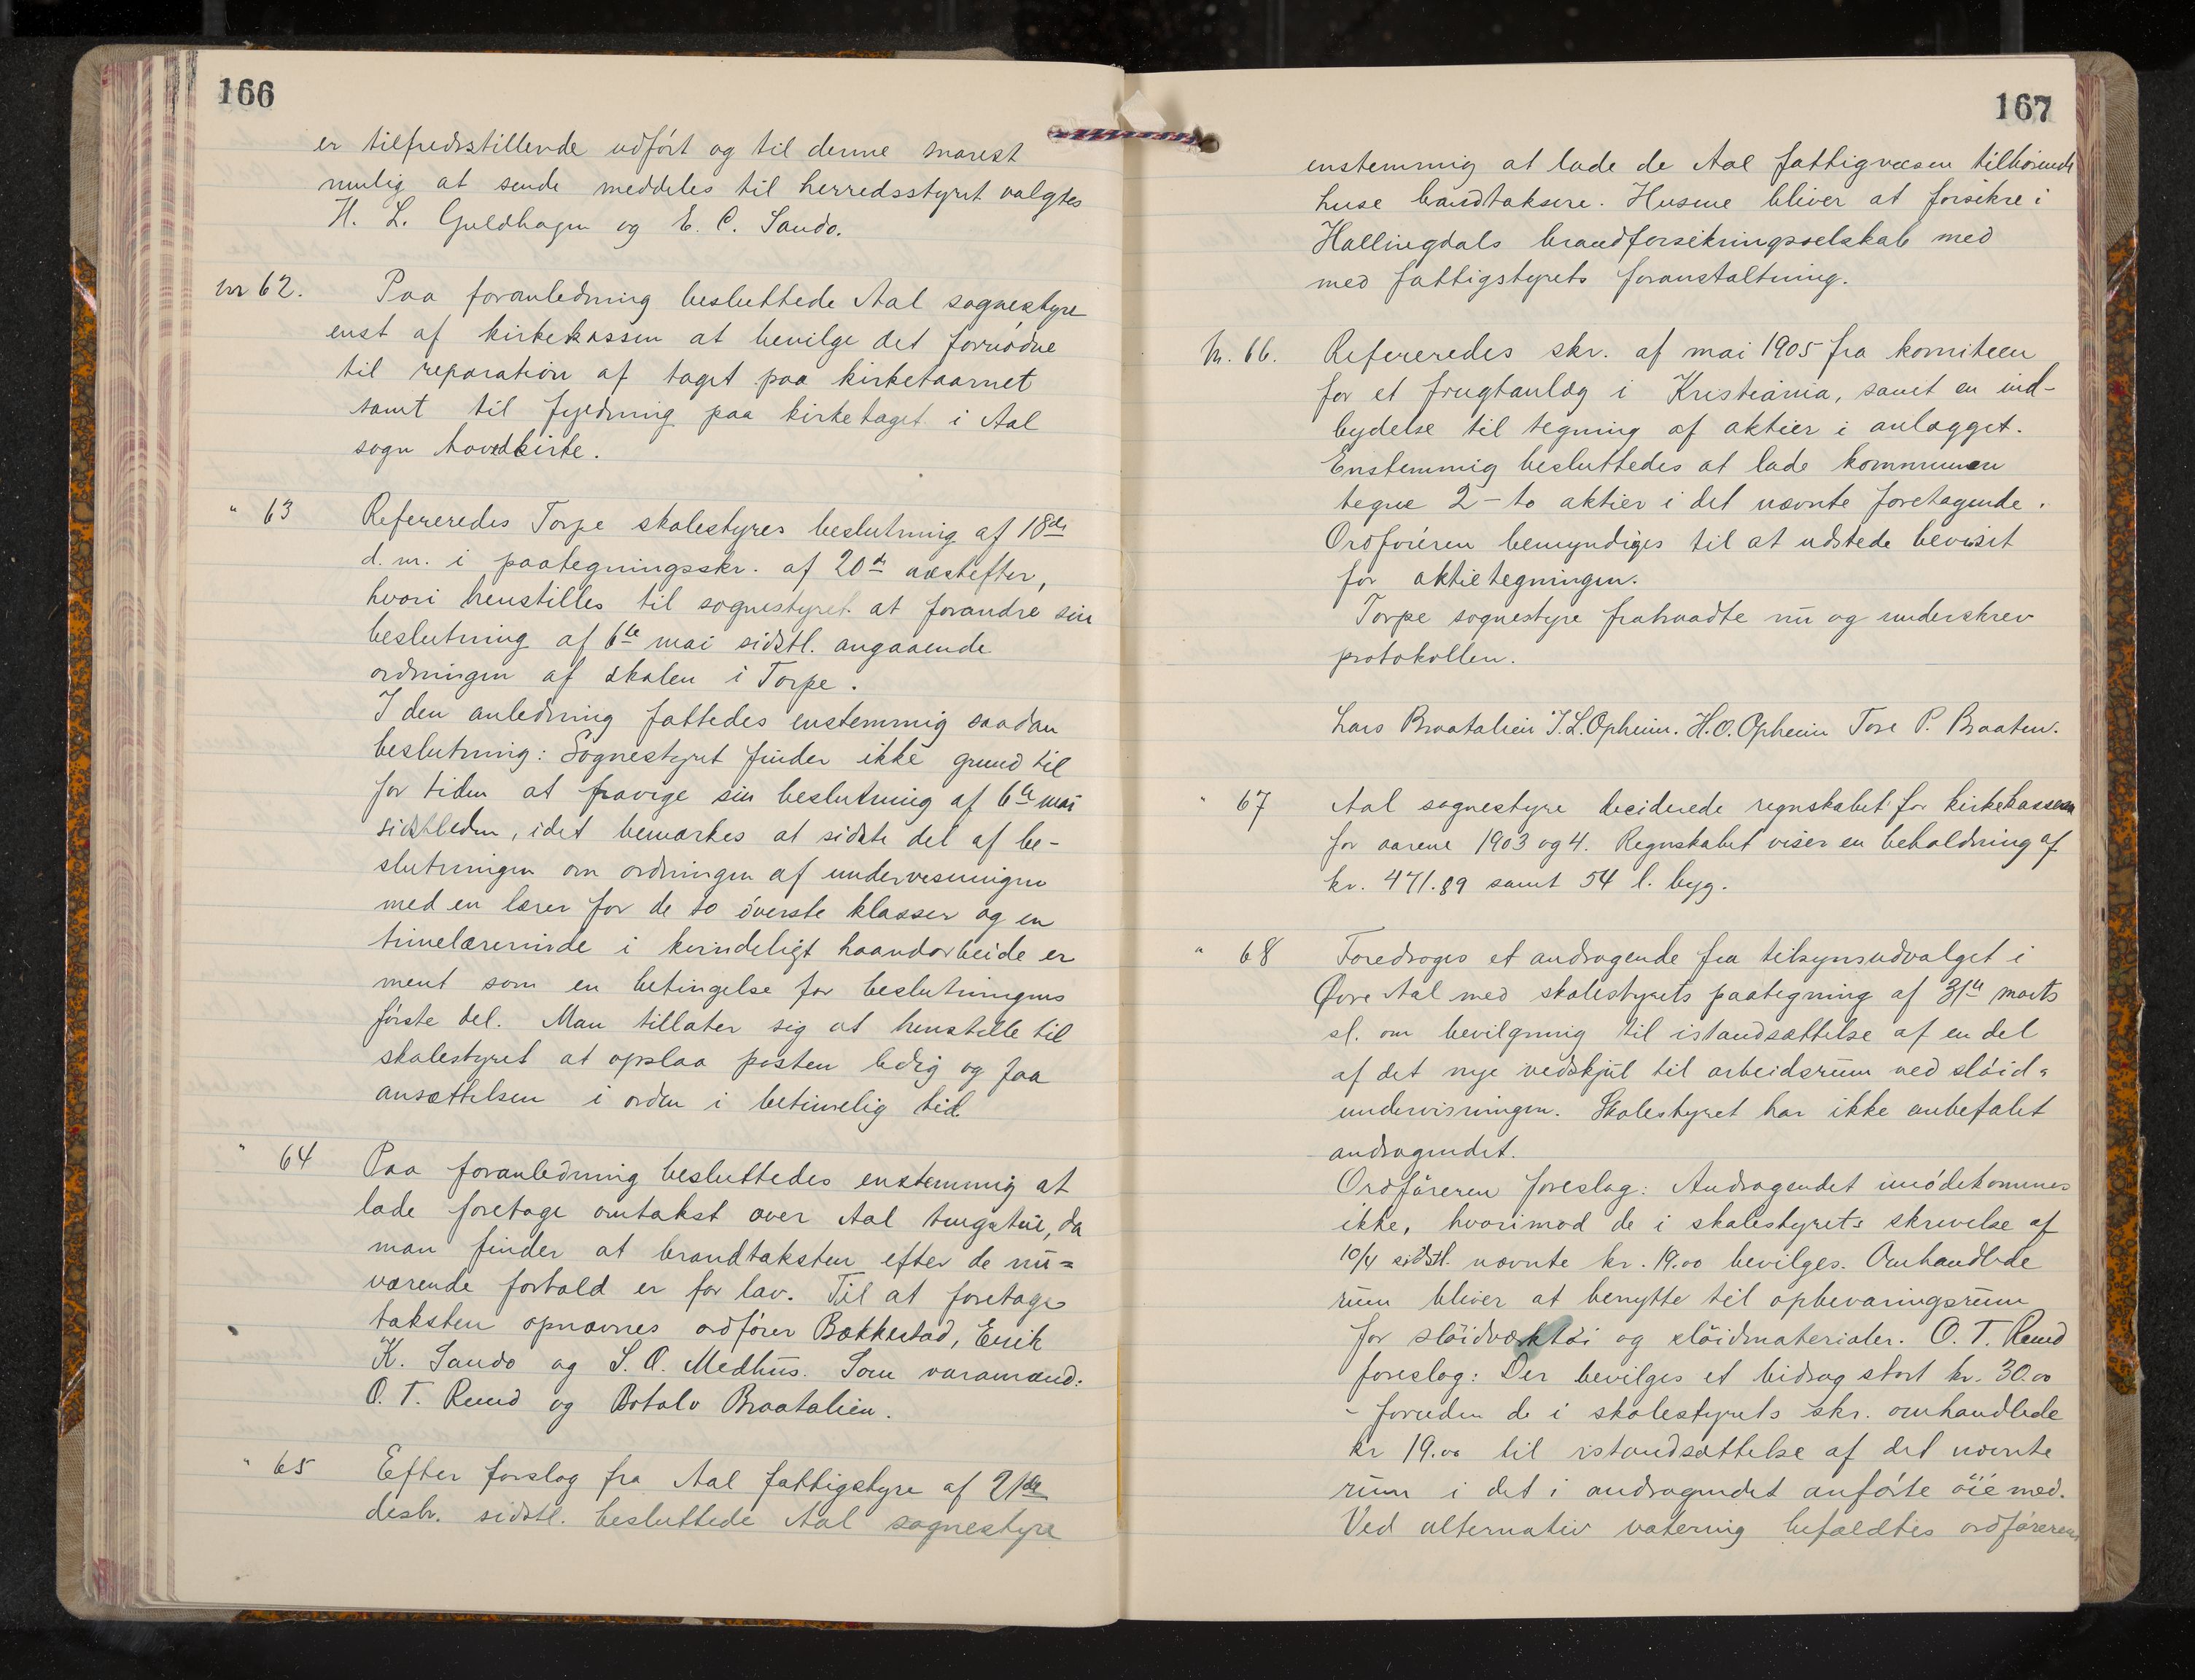 166
er tilfredsstillende udført og til denne snarest
mulig at sende meddeles til herredsstyret valgtes
H. L. Guldhagen og E. C. Sando.
nr 62. Paa foranledning besluttede Aal sognestyre
enst af kirkekassen at bevilge det fornødne
til reparation af taget paa kirketaarnet
samt til fyldning paa kirketaget i Aal
sogn hovedkirke.
" 63 Refereredes Torpe skolestyres beslutning af 18de
d. m. i paategningsskr. af 20de næstefter,
hvori henstilles til sognestyret at forandre sin
beslutning af 6te mai sidstl. angaaende
ordningen af skolen i Torpe.
I den anledning fattedes enstemmig saadan
beslutning: Sognestyret finder ikke grund til
for tiden at fravige sin beslutning af 6te mai
sidstleden, idet bemærkes at sidste del af be-
slutningen om ordningen af undervisningen
med en lærer for de to øverste klasser og en
timelærerinde i kvindeligt haandarbeide er
ment som en betingelse for beslutningens
første del. Man tillater sig at henstille til
skolestyret at opslaa posten ledig og faa
ansættelsen i orden i betimelig tid
" 64 Paa foranledning besluttedes enstemmig at
lade foretage omtakst over Aal tingstue, da
man finder at brandtaksten efter de nu=
værende forhold er for lav. Til at foretage
taksten opnævnes ordfører Bækkestad, Erik
K. Sando og S. O. Medhus. Som varamænd:
O. T. Ruud og Botolv Braatalien.
" 65 Efter forslag fra Aal fattigstyre af 21de
desbr. sidstl. besluttede Aal sognestyre
167
enstemmig at lade de Aal fattigvæsen tilhørende
huse brandtaksere. Husene bliver at forsikre i
Hallingdals brandforsikringsselskab med
med fattigstyrets foranstaltning.
Nr. 66. Refereredes skr. af mai 1905 fra komiteen
for et frugtanlæg i Kristiania, samt en ind-
bydelse til tegning af aktier i anlægget.
Enstemmig besluttedes at lade kommunen
tegne 2 - to aktier i det nævnte foretagende.
Ordføreren bemyndiges til at udstede beviset
for aktietegningen.
Torpe sognestyre fratraadte nu og underskrev
protokollen.
Lars Braatalien T. L. Opheim. H. O. Opheim Tore P. Braaten.
" 67 Aal sognestyre deciderede regnskabet for kirkekassen
for aarene 1903 og 4. Regnskabet viser en beholdning af
kr. 471.89 samt 54 l. byg.
" 68 Foredroges et andragende fra tilsynsudvalget i
Øvre Aal med skolestyrets paategning af 31te marts
sl. om bevilgning til istandsættelse af en del
af det nye vedskjul til arbeidsrum ved sløid=
undervisningen. Skolestyret har ikke anbefalet
andragendet.
Ordføreren foreslog: Andragendet imødekommes
ikke, hvorimod de i skolestyrets skrivelse af
10/4 sidstl. nævnte kr. 19.00 bevilges. Omhandlede
rum bliver at benytte til opbevaringsrum
for sløidværktøi og sløidmaterialer. O. T. Ruud
foreslog: Der bevilges et bidrag stort kr. 30.00
- foruden de i skolestyrets skr. omhandlede
kr 19.00 til istandsættelse af det nævnte
rum i det i andragendet anførte øiemed.
Ved alternativ votering befældtes ordførerens